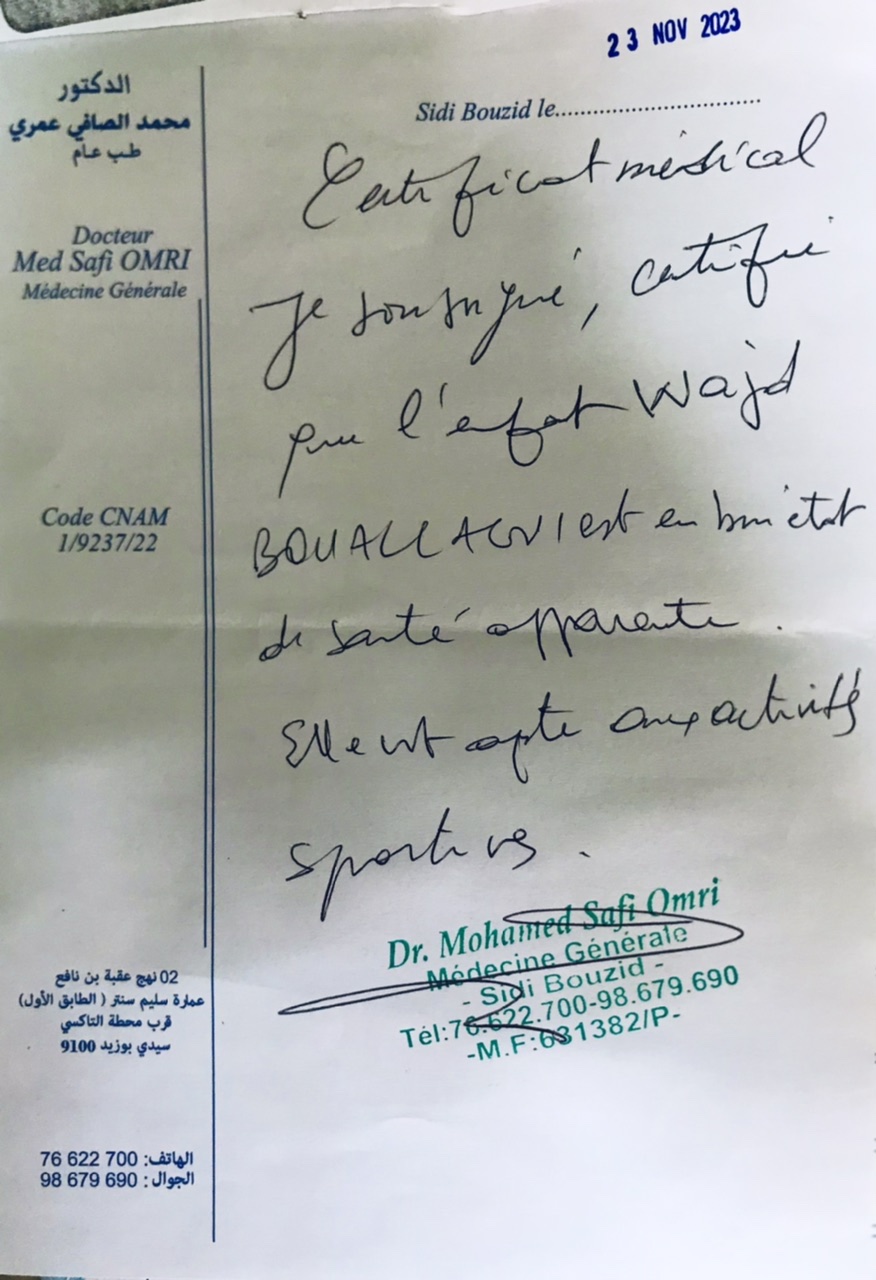 23 NOV 2023
الدكتور
محمد الصافي عمري
طب عام
Docteur
Med Safi OMRI
Médecine Générale
Code CNAM
1/9237/22
02 نهج عقبة بن نافع
عمارة سليم سنتر ( الطابق الأول)
قرب محطة التاكسي
سيدي بوزيد 9100
الهاتف: 76 622 700
الجوال : 98 679 690
Sidi Bouzid le..............................
Certificat médical
Je soussigné, certifie
que l'enfat Wajd
BOUALLAGUI est en bon état
de santé apparente .
Elle est apte aux activités
sportives .
Dr. Mohamed Safi Omri
Médecine Générale
- Sidi Bouzid -
Tél:76.622.700-98.679.690
-M.F:631382/P-